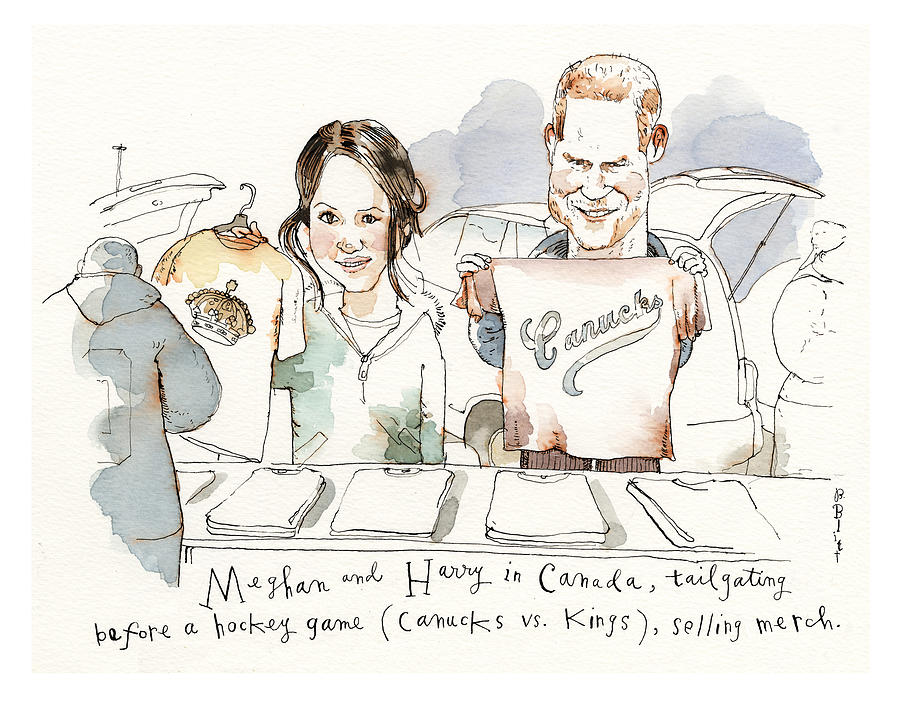 Canucks
B. Blitt
Meghan and Harry in Canada, tailgating
before a hockey game (Canucks vs. Kings), selling merch.